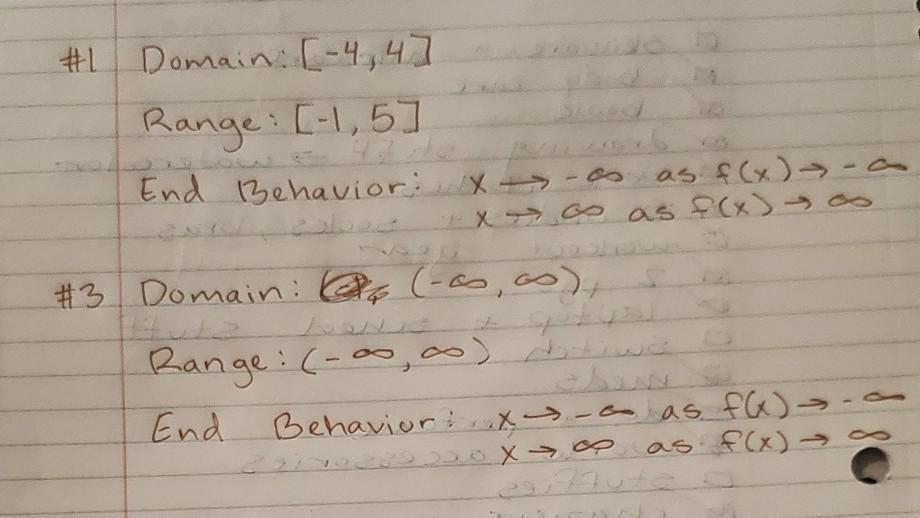 #1 Domain: [-4,4]
Range: [-1,5]
End Behavior: x → -∞ as f(x) → -∞
x → ∞ as f(x) → ∞
#3 Domain: (-∞,∞)
Range: (-∞,∞)
End Behavior: x → -∞ as f(x) → -∞
x → ∞ as f(x) → ∞